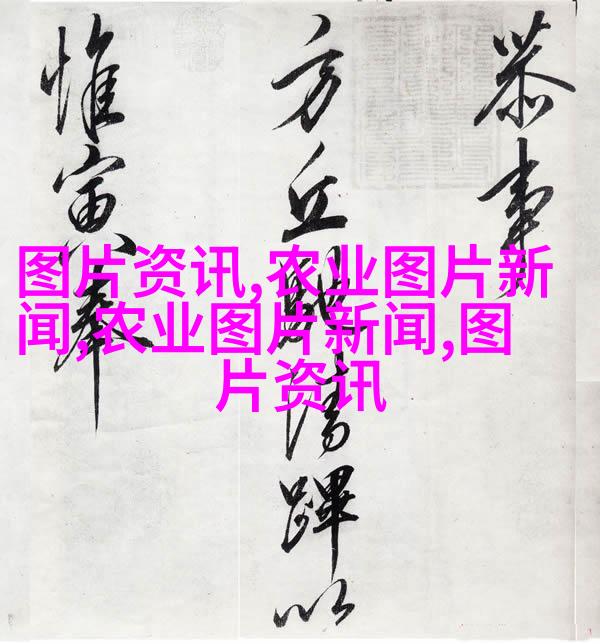 恭事
方丘清蹕以
惟寅奉
图片资讯,农业图片新
闻,农业图片新闻,图
片资讯